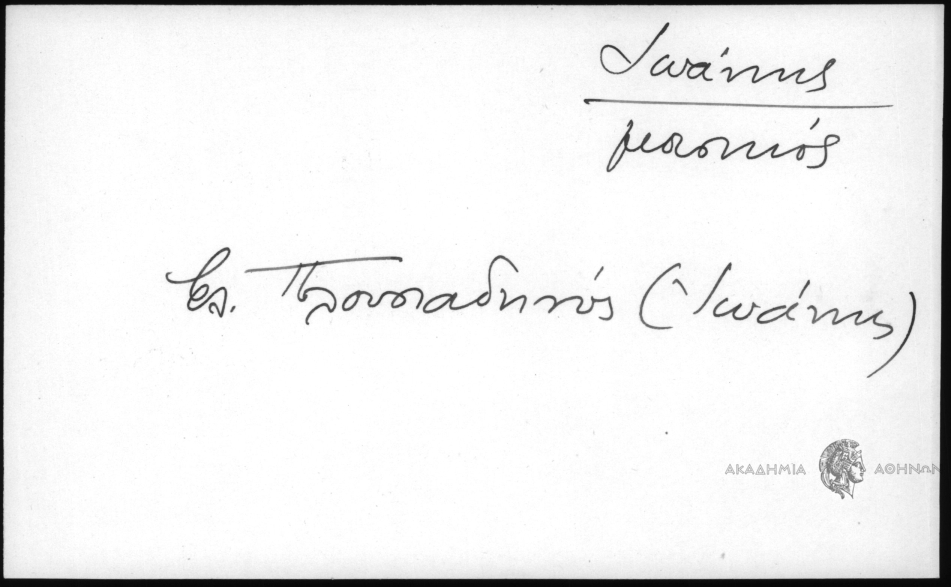 Ἰωάννης
μουσικός
Βλ. Πλουσιαδηνός (Ἰωάννης)
ΑΚΑΔΗΜΙΑ ΑΘΗΝΩΝ